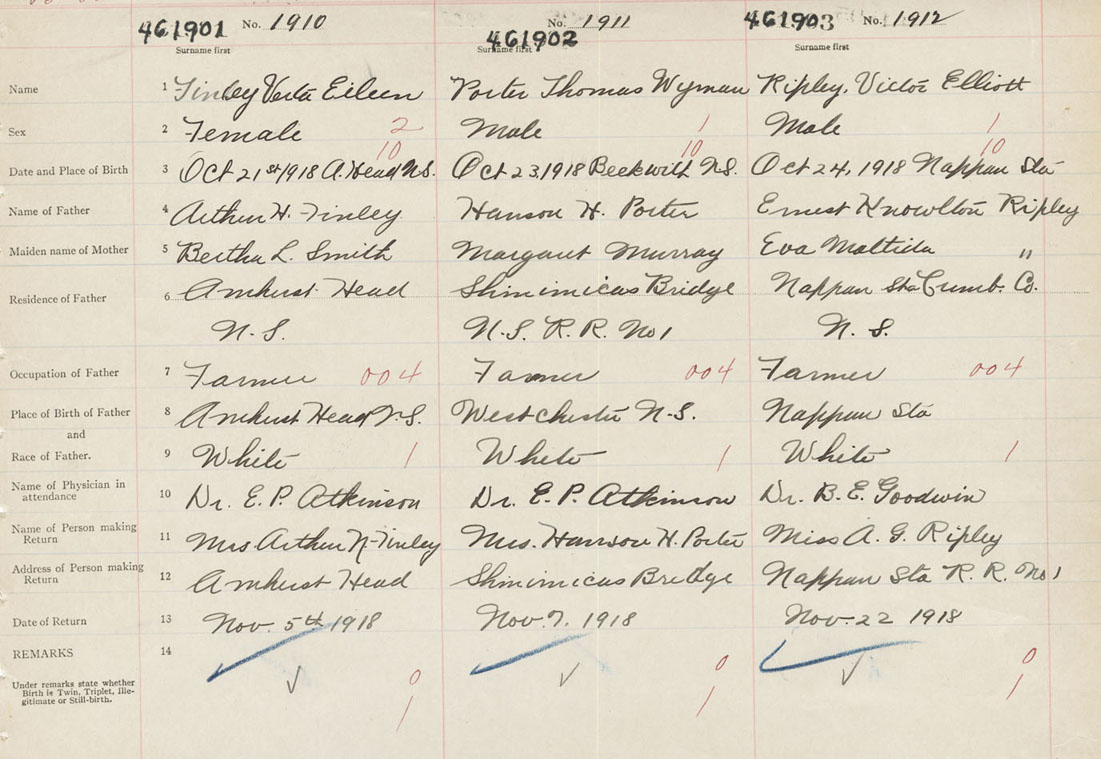 461901 No. 1910 461902 No. 1911 461903 No. 1912
Surname first Surname first Surname first
Name 1 Finley Verta Eileen Porter Thomas Wyman Ripley, Victor Elliott
Sex 2 Female 2 Male 1 Male 1
10 10 10
Date and Place of Birth 3 Oct 21st 1918 A. Head N.S. Oct 23 1918 Beckwith N.S. Oct 24, 1918 Nappan Sta
Name of Father 4 Arthur H. Finley Hanson H. Porter Ernest Knowlton Ripley
Maiden name of Mother 5 Bertha L. Smith Margaret Murray Eva Maltida "
Residence of Father 6 Amherst Head Shinimicas Bridge Nappan Sta Cumb. Co.
N.S. N.S. R.R. No 1 N.S.
Occupation of Father 7 Farmer 004 Farmer 004 Farmer 004
Place of Birth of Father 8 Amherst Head N.S. Westchester N.S. Nappan Sta
and
Race of Father. 9 White 1 White 1 White 1
Name of Physician in attendance 10 Dr. E. P. Atkinson Dr. E. P. Atkinson Dr. B. E. Goodwin
Name of Person making Return 11 Mrs Arthur H Finley Mrs. Hanson H. Porter Miss A. G. Ripley
Address of Person making Return 12 Amherst Head Shinimicas Bridge Nappan Sta R.R. No 1
Date of Return 13 Nov. 5th 1918 Nov. 7. 1918 Nov. 22 1918
REMARKS 14
0 0 0
Under remarks state whether
Birth is Twin, Triplet, Ille-
gitimate or Still-birth.
1 1 1